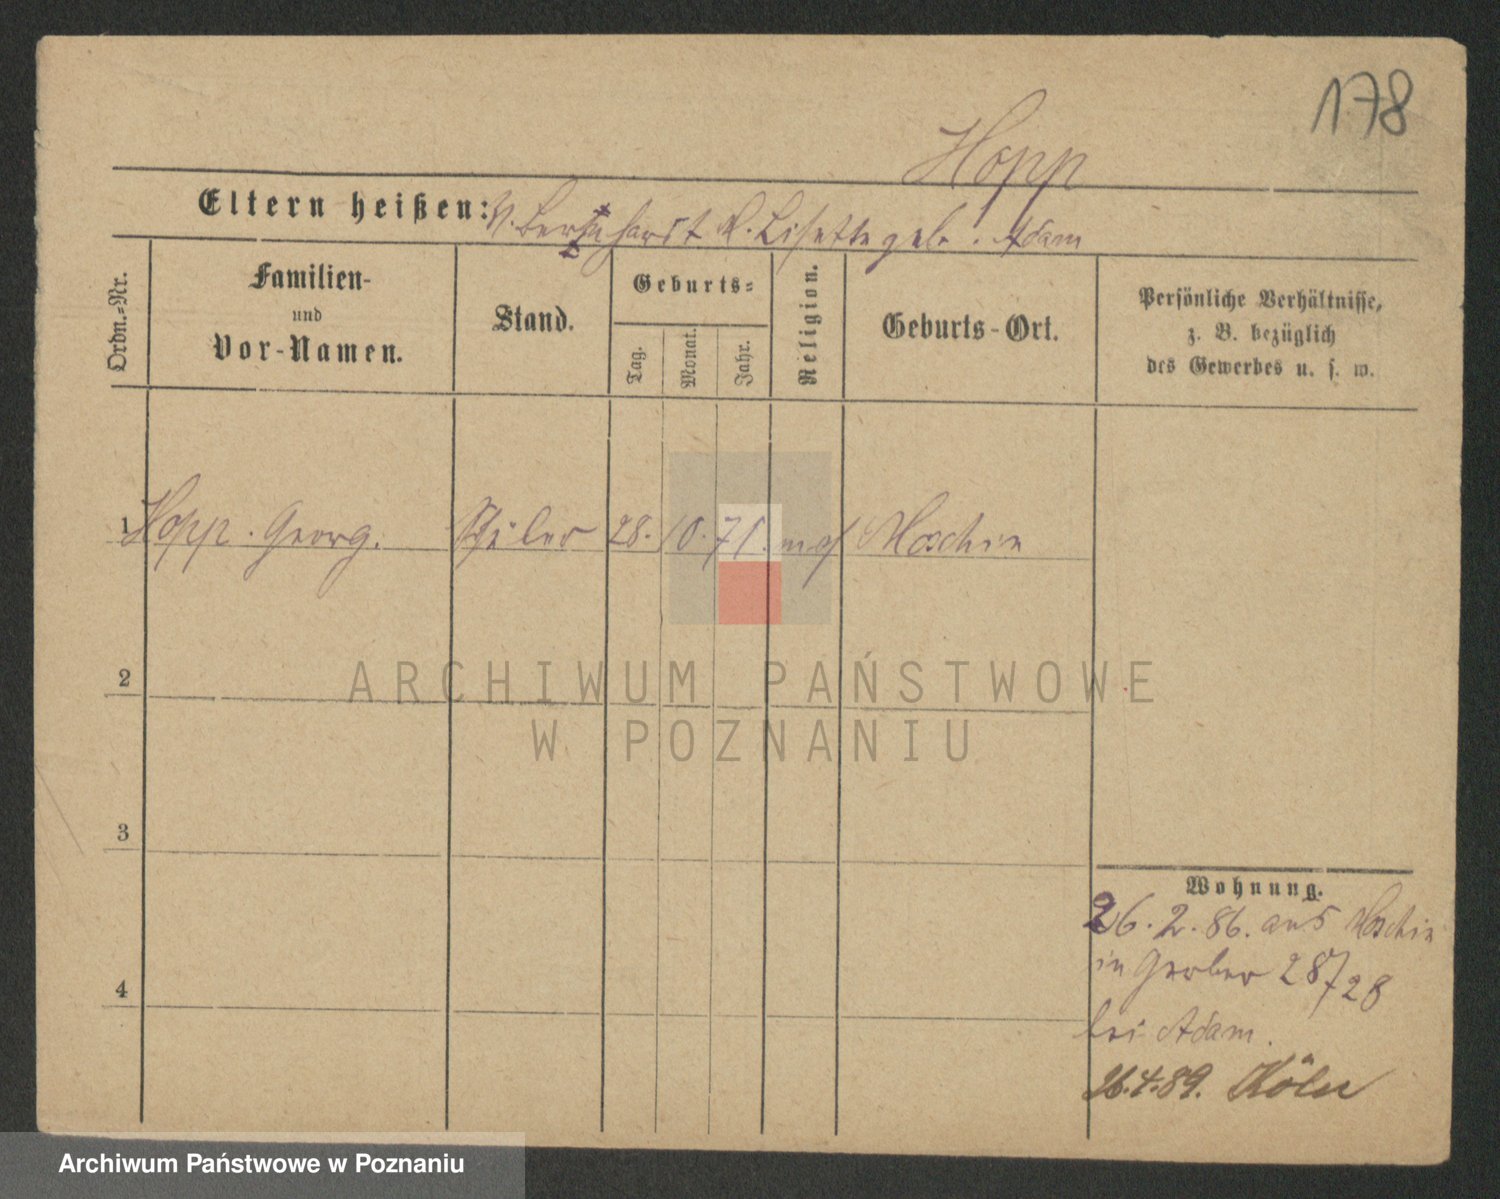 178
Hopp
Eltern heißen: V. Bernhardt M. Lisette geb. Adam
Ordn.-Nr.
Familien-
und
Vor-Namen.
Stand.
Geburts-
Tag.
Monat.
Jahr.
Religion.
Geburts-Ort.
Persönliche Verhältnisse,
z. B. bezüglich
des Gewerbes u. s. w.
1 Hopp. Georg. Schüler 28. 10. 71. mos Moschin
2
3
4
Wohnung.
26. 2. 86. aus Moschin
in Gerber 28/28
bei Adam.
26.4.89. Köln
ARCHIWUM PAŃSTWOWE
W POZNANIU
Archiwum Państwowe w Poznaniu